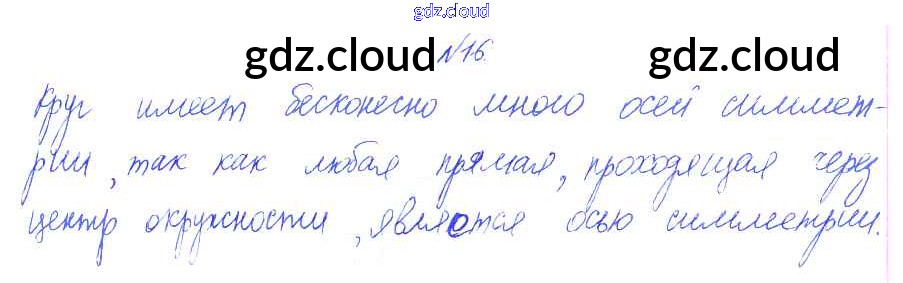 gdz.cloud
gdz.cloud №16 gdz.cloud
Круг имеет бесконечно много осей симмет-
рии, так как любая прямая, проходящая через
центр окружности, является осью симметрии.